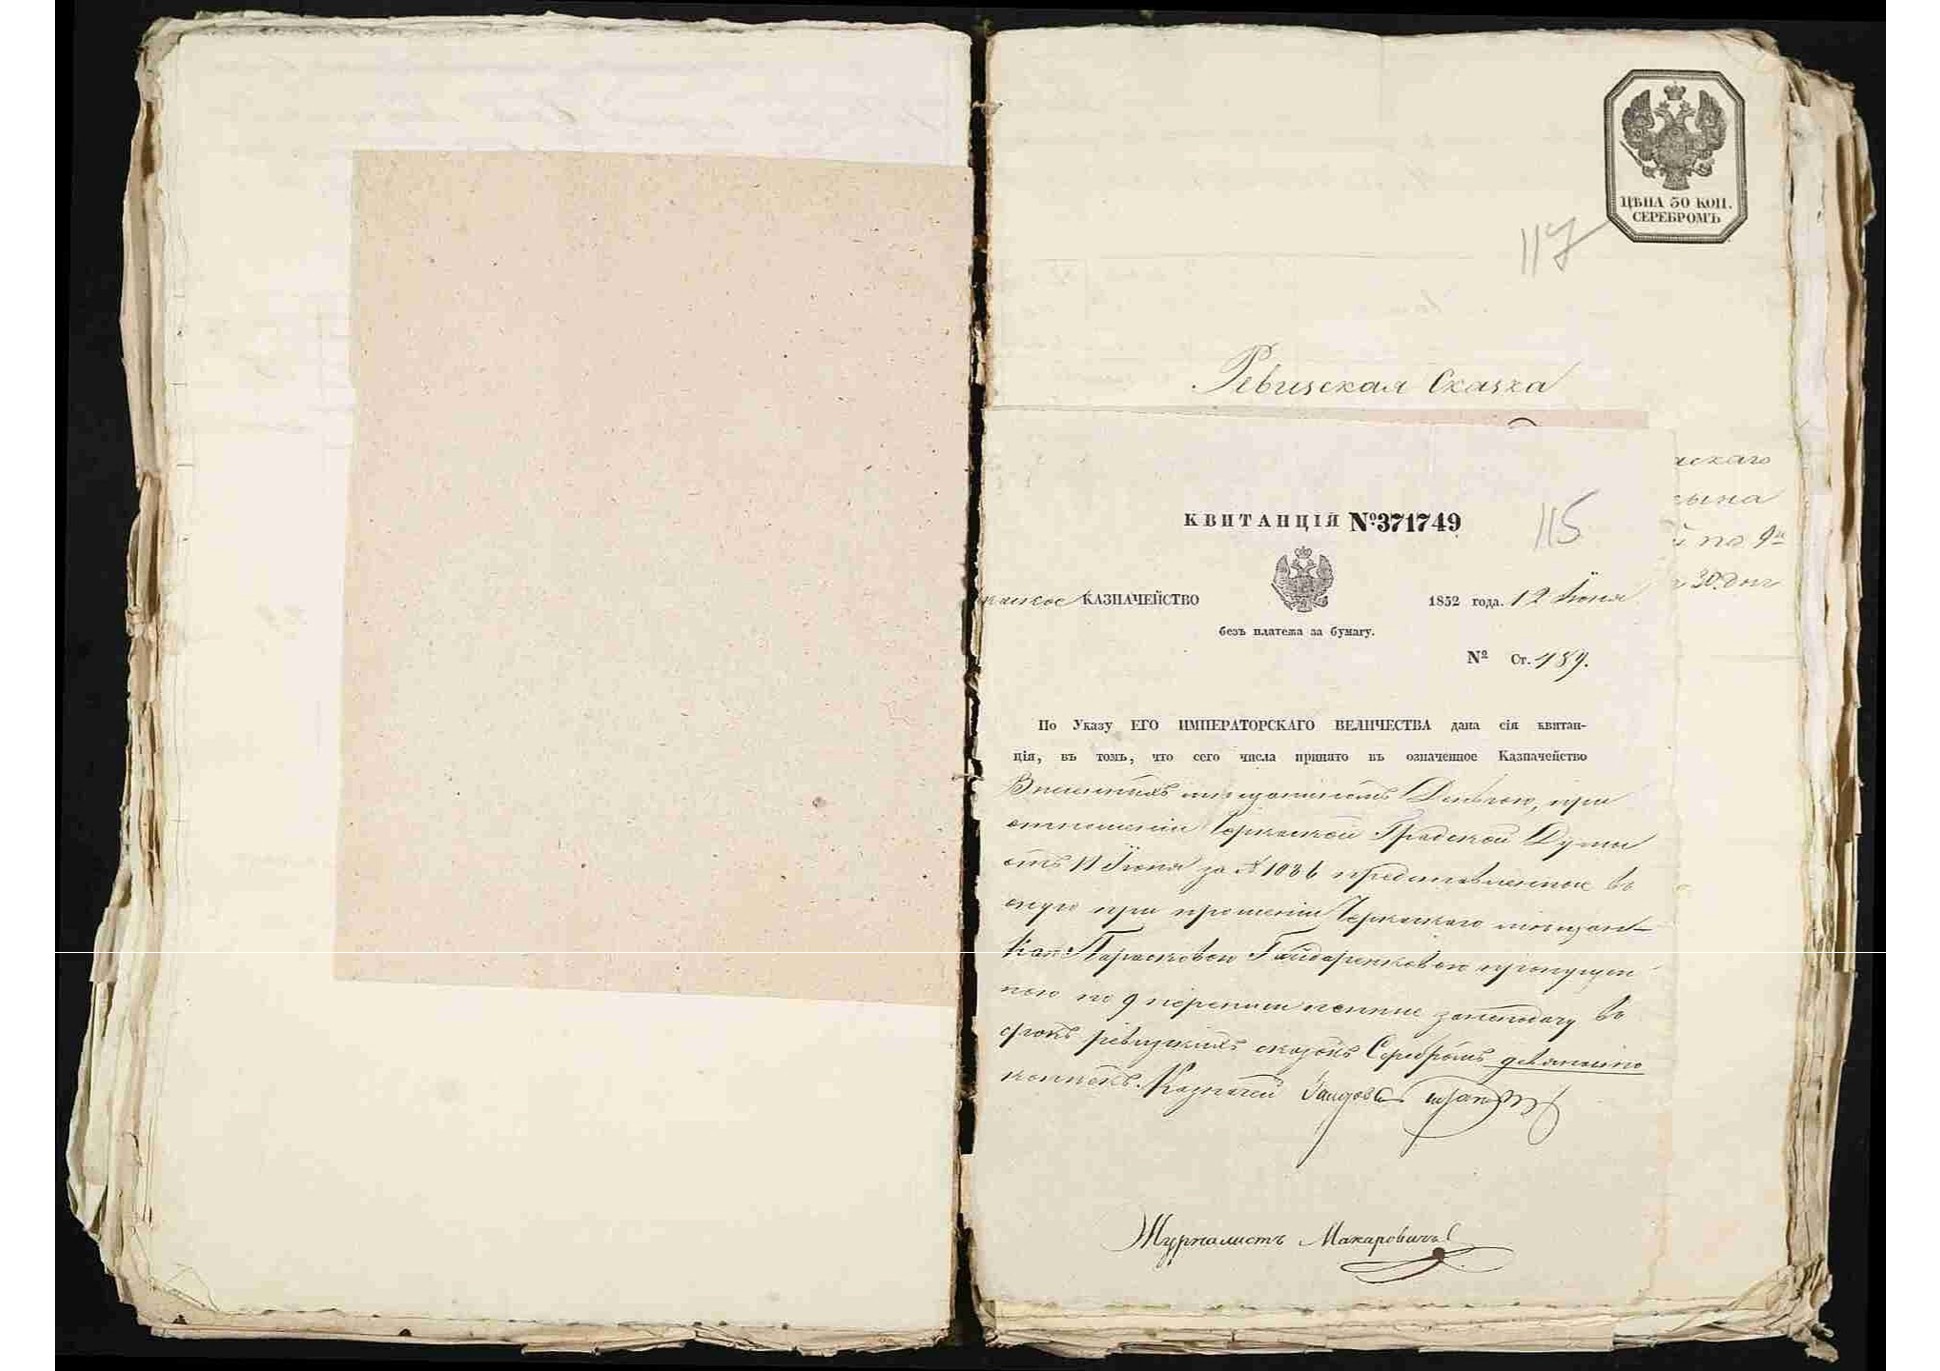 ЦѢНА 30 КОП.
СЕРЕБРОМЪ
117
Ревизская Сказка
скаго
сына
й по 9й
30. дня
КВИТАНЦІЯ №371749
115
КАЗНАЧЕЙСТВО
1852 года. 12 Іюня
безъ платежа за бумагу.
№ Ст. 489.
По Указу ЕГО ИМПЕРАТОРСКАГО ВЕЛИЧЕСТВА дана сія квитан-
ція, въ томъ, что сего числа принято въ означенное Казначейство
при
отношеніи Черкаской Градской Думы
отъ 11 Іюня за №1086 представленное въ
оную при прошеніи Черкаскаго мѣщан-
кою Парасковою Гайдаренковою пропущен
ною по 9 переписи пенные за неподачу въ
срокъ ревизскихъ сказокъ Серебромъ девяносто
копѣекъ. Казначей
Журналистъ Макаровичъ